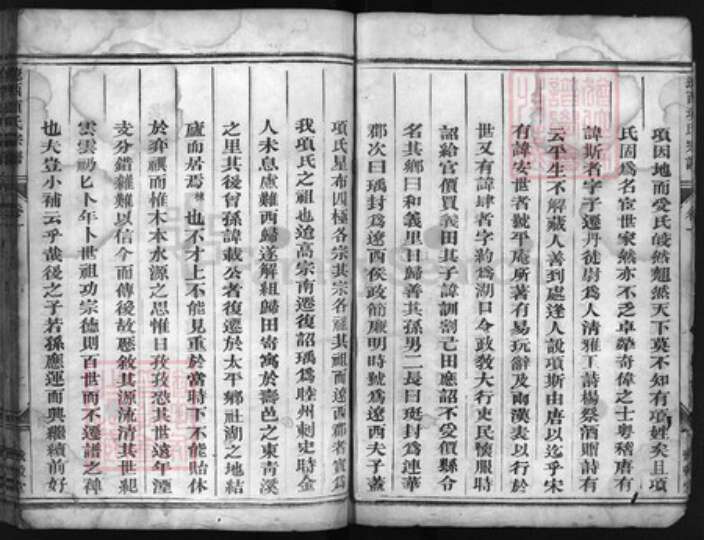 項因地而受氏皎然翹然天下莫不知有項姓矣且項
氏固為名宦世家然亦不乏卓犖奇偉之士粤稽唐有
諱斯者字子遷丹徒尉為人清雅工詩楊祭酒贈詩有
云平生不解藏人善到處逢人說項斯由唐以迄乎宋
有諱安世者號平庵所著有易玩辭及兩漢表以行於
世又有諱肆者字約為湖口令政教大行吏民懷服時
詔給官價買義田其子諱訓割己田應詔不受價縣令
名其鄉曰和義里曰歸善其孫男二長曰珽封為連華
郡次曰瑀封為遼西侯政簡廉明時號為遼西夫子蓋
項氏星布四極各宗其宗各祖其祖而遼西郡者實為
我項氏之祖也迨高宗南遷復詔瑀為睦州刺史時金
人未息慮難西歸遂解組歸田寄寓於壽邑之東青溪
之里其後曾孫諱載公者復遷於太平鄉社湖之地結
廬而居焉 也不才上不能見重於當時下不能貽休
於弈禩而惟木本水源之思惟日孜孜恐其世遠年湮
支分錯雜難以信今而傳後故聊敘其源流清其世紀
雲雲禩匕卜年卜世祖功宗德則百世而不遷譜之裨
也夫豈小補云乎哉後之子若孫應運而興繼續前好